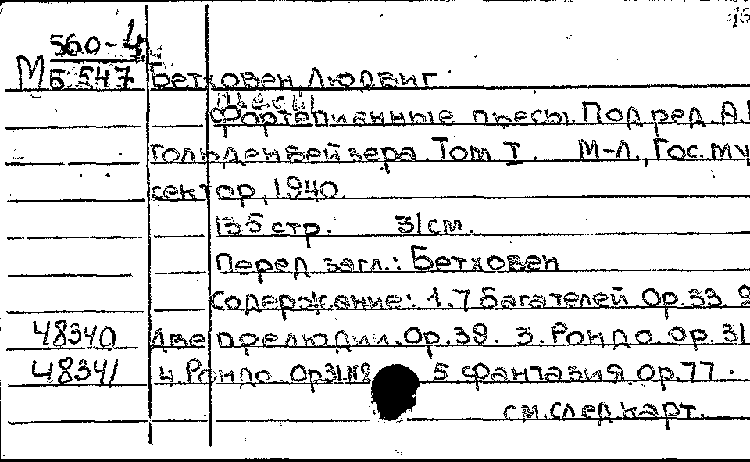 560-4
М Б 547 Бетховен Людвиг.
Пьесы
Фортепианные пьесы. Под ред. А.
Гольденвейзера. Том I. М-Л., Гос. му
сектор, 1940.
155 стр. 31 см.
Перед загл.: Бетховен
Содержание: 1. 7 багателей Ор. 33 2
48340 Две прелюдии. Ор. 39. 3. Рондо. Ор. 31
48341 4. Рондо Ор 51.№2 5 Фантазия Ор. 77.
см. след. карт.